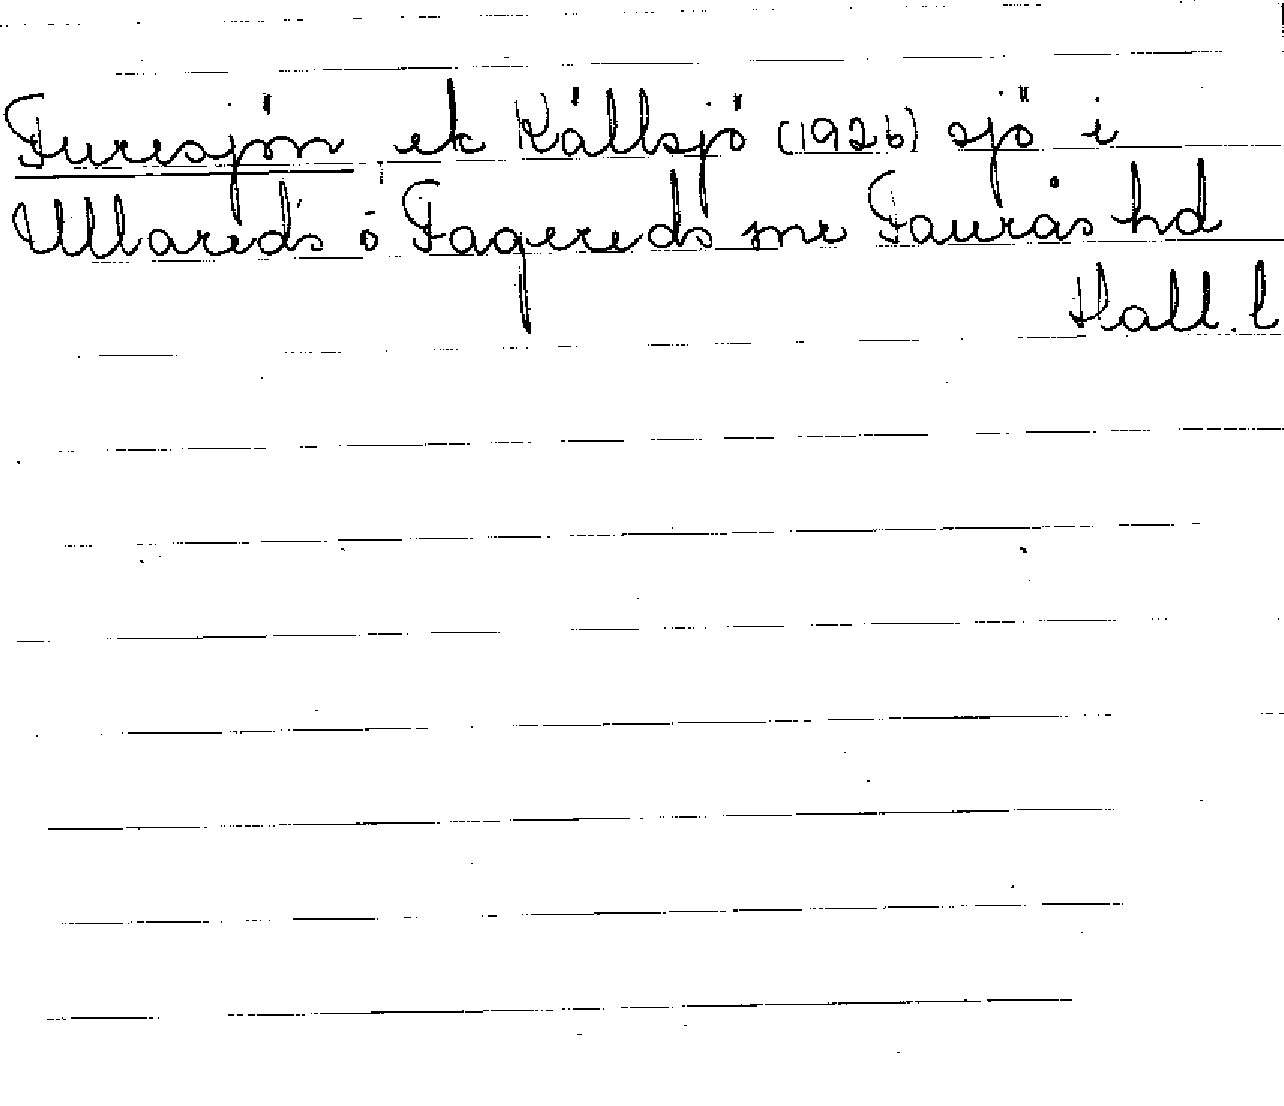 Furesjön ek Källsjö (1926) sjö i
Ullareds o Fagereds snr Faurås hd
Hall. l